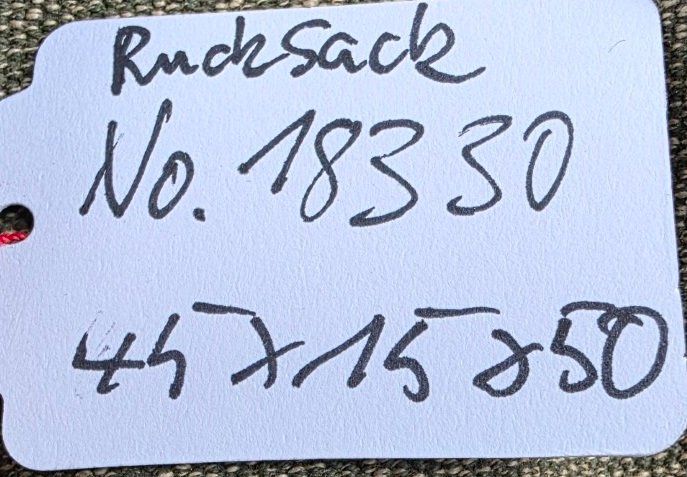 Rucksack
No. 18330
45x15x50